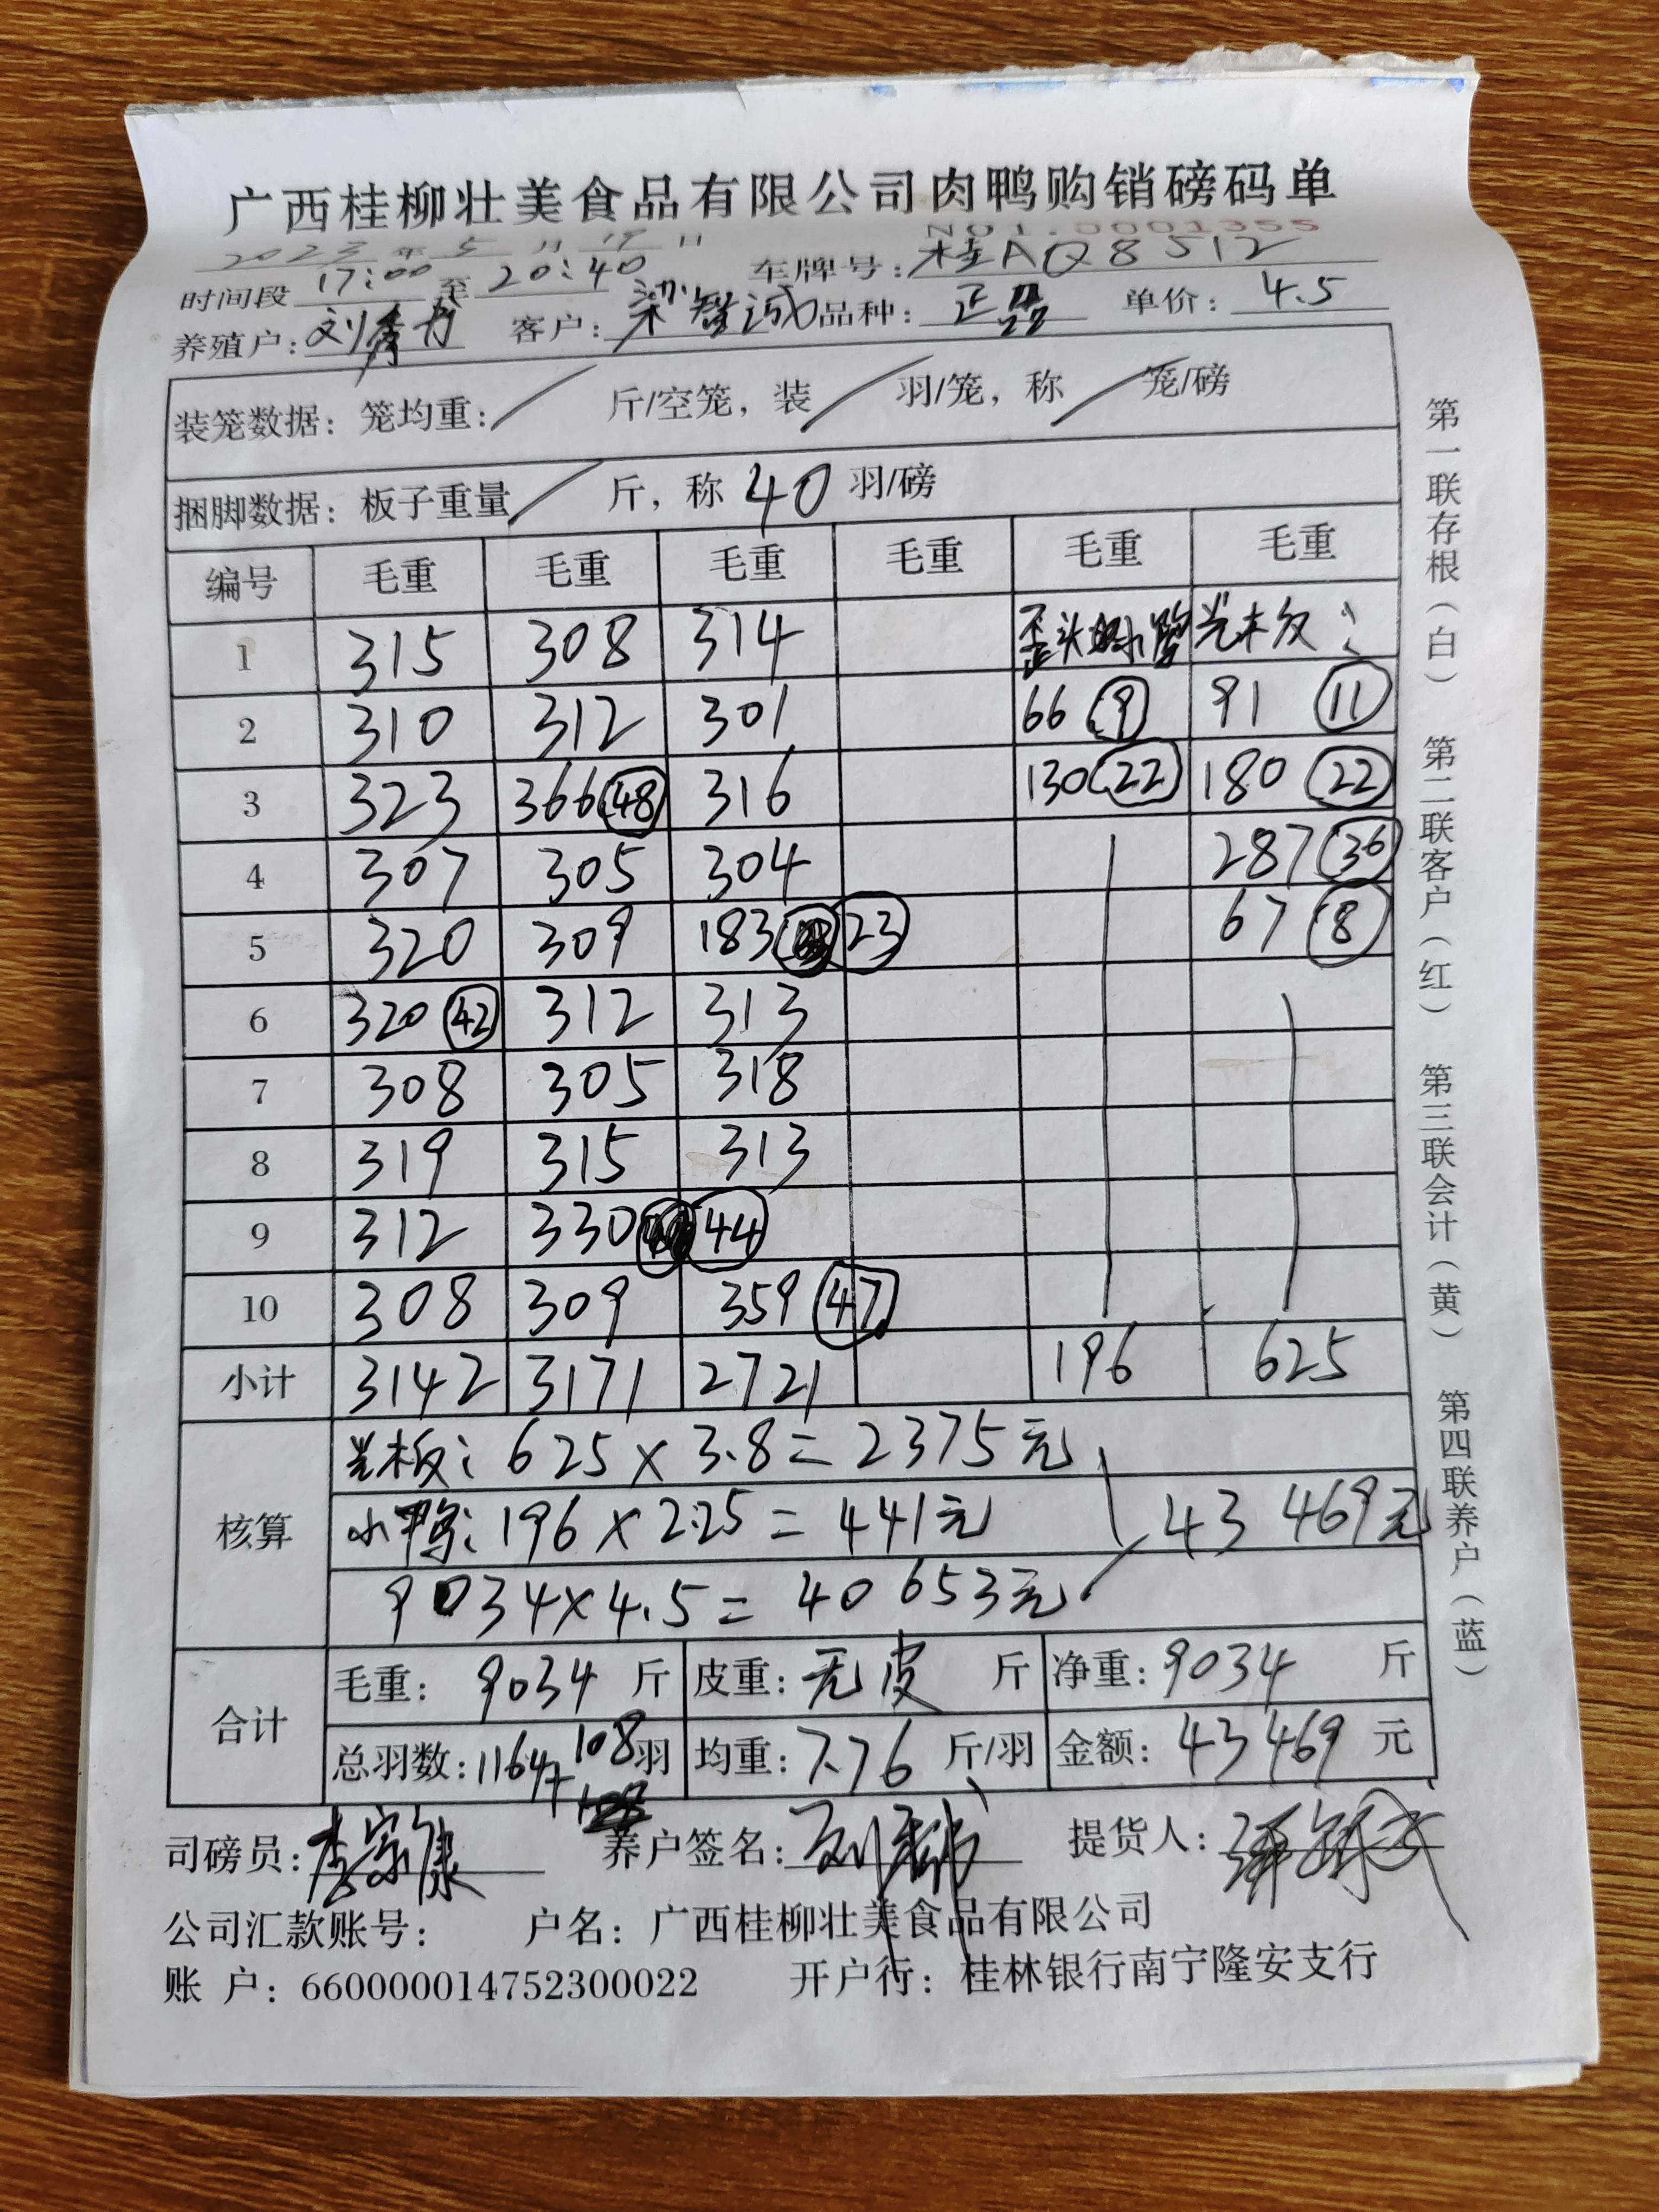 广西桂柳壮美食品有限公司肉鸭购销磅码单
NO1.0001355
2023年5月19日
时间段 17:00 至 20:40 车牌号: 桂AQ8512
养殖户: 刘秀 客户: 梁智诚 品种: 正品 单价: 4.5
装笼数据: 笼均重: / 斤/空笼, 装 / 羽/笼, 称 / 笼/磅
捆脚数据: 板子重量 / 斤, 称 40 羽/磅
编号 毛重 毛重 毛重 毛重 毛重 毛重
1 315 308 314 歪头 小鸭 光板:
2 310 312 301 66 9 91 11
3 323 366 48 316 130 22 180 22
4 307 305 304 287 36
5 320 309 183 23 67 8
6 320 42 312 313
7 308 305 318
8 319 315 313
9 312 330 44
10 308 309 359 47
小计 3142 3171 2721 196 625
核算
光板: 625×3.8=2375元
小鸭: 196×2.25=441元 43469元
9034×4.5=40653元
合计
毛重: 9034 斤 皮重: 无皮 斤 净重: 9034 斤
总羽数: 1164+108 羽 均重: 7.76 斤/羽 金额: 43469 元
司磅员: 李宗康 养户签名: 刘 提货人:
公司汇款账号: 户名: 广西桂柳壮美食品有限公司
账 户: 660000014752300022 开户行: 桂林银行南宁隆安支行
第一联存根(白) 第二联客户(红) 第三联会计(黄) 第四联养户(蓝)